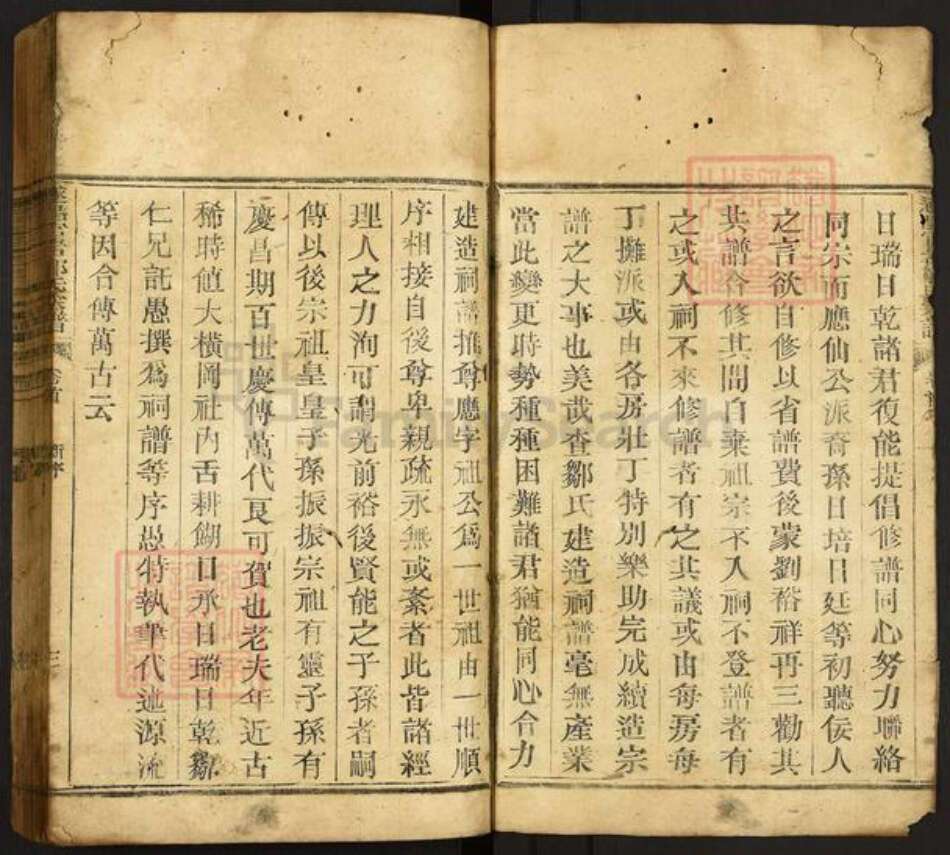 日瑞日乾諸君復能提倡修譜同心努力聯絡
同宗南應仙公派裔孫日培日廷等初聽佞人
之言欲自修以省譜費後蒙劉裕祥再三勸其
共譜合修其間自棄祖宗不入祠不登譜者有
之或入祠不來修譜者有之其議或由每房每
丁攤派或由各房壯丁特別樂助完成續造宗
譜之大事也美哉查鄒氏建造祠譜毫無產業
當此變更時勢種種困難諸君猶能同心合力
建造祠譜推尊應字祖公爲一世祖由一世順
序相接自後尊卑親疏永無或紊者此皆諸經
理人之力洵可謂光前裕後賢能之子孫者嗣
傳以後宗祖皇皇子孫振振宗祖有靈子孫有
慶昌期百世慶傳萬代良可賀也老夫年近古
稀時値大橫岡社內舌耕餬口承日瑞日乾鄒
仁兄託愚撰爲祠譜等序愚特執筆代述源流
等因合傳萬古云